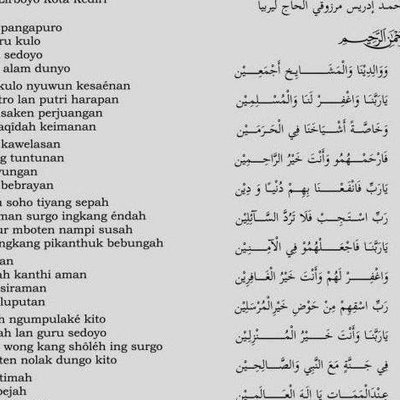 Lirboyo Kota Kediri
pangapuro
ru kulo
sedoyo
alam dunyo
kulo nyuwun kesaénan
tro lan putri harapan
saken perjuangan
aqidah keimanan
kawelasan
g tuntunan
yungan
bebrayan
soho tiyang sepah
man surgo ingkang éndah
ur mboten nampi susah
ngkang pikanthuk bebungah
an
ah kanthi aman
siraman
luputan
h ngumpulaké kito
ah lan guru sedoyo
wong kang shôléh ing surgo
ten nolak dungo kito
timah
pejah
حمد إدريس مرزوقي الحاج ليربيا
وَوَالِدِيْنَا وَالْمَشَايِخِ أَجْمَعِيْن
يَارَبَّنَا وَاغْفِرْ لَنَا وَالْمُسْلِمِيْن
وَخَاصَّةً أَشْيَاخَنَا فِي الْحَرَمَيْن
فَارْحَمْهُمُو وَأَنْتَ خَيْرُ الرَّاحِمِيْن
يَارَبِّ فَانْفَعْنَا بِهِمْ دُنْيًا وَ دِيْن
رَبِّ اسْتَجِبْ فَلَا تَرُدَّ السَّآئِلِيْن
يَارَبَّنَا فَاجْعَلْهُمُو فِي الْآمِنِيْن
وَاغْفِرْ لَهُمْ وَأَنْتَ خَيْرُ الْغَافِرِيْن
رَبِّ اسْقِهِمْ مِنْ حَوْضِ خَيْرِ الْمُرْسَلِيْن
يَارَبَّنَا وَأَنْتَ خَيْرُ الْمُنْزِلِيْن
فِي جَنَّةٍ مَعَ النَّبِي وَالصَّالِحِيْن
عِنْدَ الْمَمَاتِ يَا إِلَهَ الْعَالَمِيْن